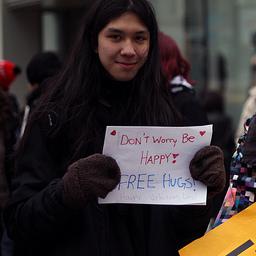 DON'T WORRY BE
HAPPY!
FREE HUGS!